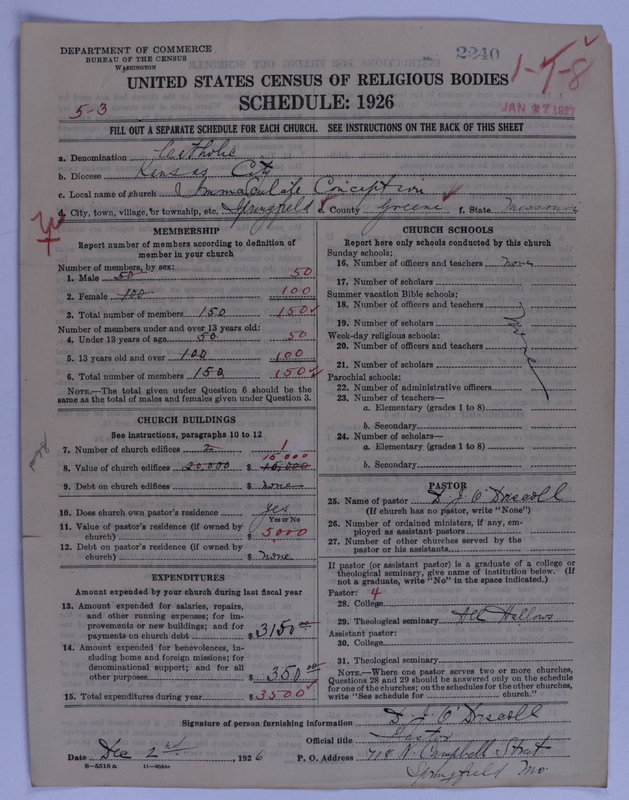 DEPARTMENT OF COMMERCE
BUREAU OF THE CENSUS
WASHINGTON
2240
1-T-8
UNITED STATES CENSUS OF RELIGIOUS BODIES
SCHEDULE: 1926
5-3
JAN 27 1927
FILL OUT A SEPARATE SCHEDULE FOR EACH CHURCH. SEE INSTRUCTIONS ON THE BACK OF THIS SHEET
a. Denomination Catholic
b. Diocese Kansas City
c. Local name of church Immaculate Conception
d. City, town, village, or township, etc. Springfield e. County Greene f. State Missouri
MEMBERSHIP
Report number of members according to definition of
member in your church
Number of members, by sex:
1. Male 50 50
2. Female 100 100
3. Total number of members 150 150
Number of members under and over 13 years old:
4. Under 13 years of age 50 50
5. 13 years old and over 100 100
6. Total number of members 150 150
NOTE.—The total given under Question 6 should be the
same as the total of males and females given under Question 3.
CHURCH BUILDINGS
See instructions, paragraphs 10 to 12
7. Number of church edifices 2 1
15,000
8. Value of church edifices 20,000 $ 10,000
9. Debt on church edifices $ none
10. Does church own pastor's residence yes
Yes or No
11. Value of pastor's residence (if owned by
church) $ 5000
12. Debt on pastor's residence (if owned by
church) $ none
EXPENDITURES
Amount expended by your church during last fiscal year
13. Amount expended for salaries, repairs,
and other running expenses; for im-
provements or new buildings; and for
payments on church debt $ 3150.00
14. Amount expended for benevolences, in-
cluding home and foreign missions; for
denominational support; and for all
other purposes $ 350.00
15. Total expenditures during year $ 3500
CHURCH SCHOOLS
Report here only schools conducted by this church
Sunday schools:
16. Number of officers and teachers none
17. Number of scholars
Summer vacation Bible schools:
18. Number of officers and teachers
19. Number of scholars
None
Week-day religious schools:
20. Number of officers and teachers
21. Number of scholars
Parochial schools:
22. Number of administrative officers
23. Number of teachers—
a. Elementary (grades 1 to 8)
b. Secondary
24. Number of scholars—
a. Elementary (grades 1 to 8)
b. Secondary
PASTOR
25. Name of pastor D. J. O'Driscoll
(If church has no pastor, write "None")
26. Number of ordained ministers, if any, em-
ployed as assistant pastors
27. Number of other churches served by the
pastor or his assistants
If pastor (or assistant pastor) is a graduate of a college or
theological seminary, give name of institution below. (If
not a graduate, write "No" in the space indicated.)
Pastor: 4
28. College
29. Theological seminary All Hallows
Assistant pastor:
30. College
31. Theological seminary
NOTE.—Where one pastor serves two or more churches,
Questions 28 and 29 should be answered only on the schedule
for one of the churches; on the schedules for the other churches,
write "See schedule for church."
Signature of person furnishing information D. J. O'Driscoll
Official title Pastor
Date Dec 2nd, 1926 P. O. Address 718 N. Campbell Street
8-5518a 11-9064a Springfield Mo